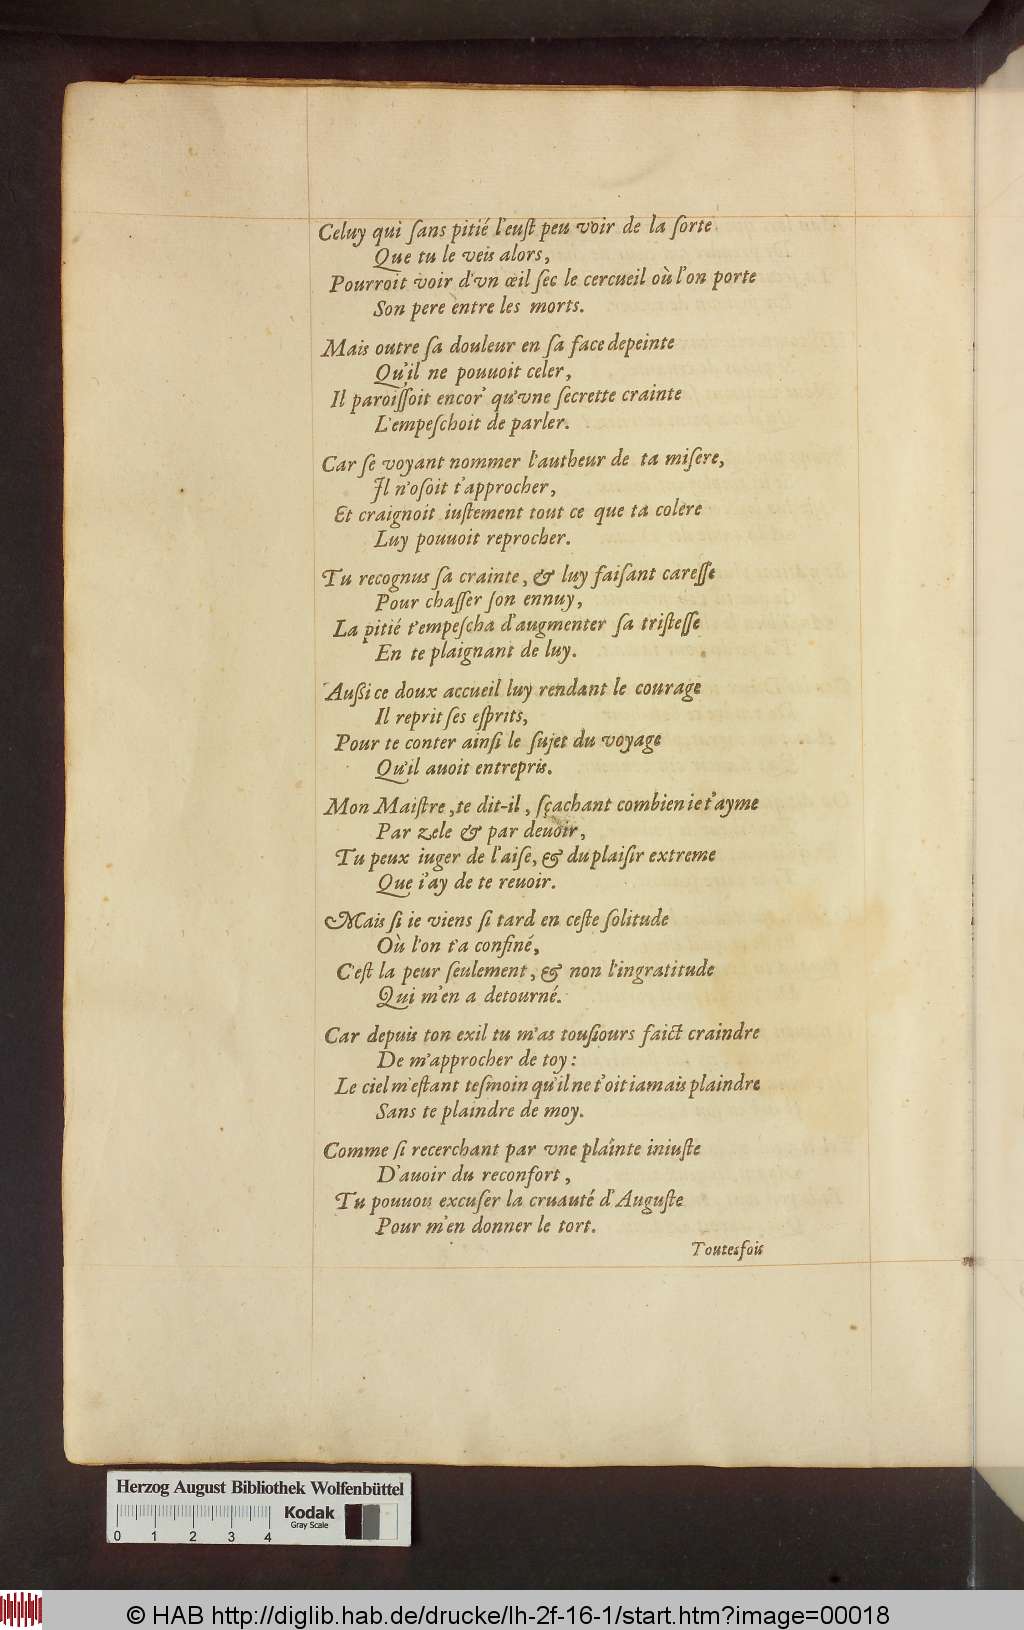 Celuy qui ſans pitié l'euſt peu voir de la ſorte
Que tu le veis alors,
Pourroit voir d'vn œil ſec le cercueil où l'on porte
Son pere entre les morts.
Mais outre ſa douleur en ſa face depeinte
Qu'il ne pouuoit celer,
Il paroiſſoit encor' qu'vne ſecrette crainte
L'empeſchoit de parler.
Car ſe voyant nommer l'autheur de ta miſere,
Il n'oſoit t'approcher,
Et craignoit iuſtement tout ce que ta colere
Luy pouuoit reprocher.
Tu recognus ſa crainte, & luy faiſant careſſe
Pour chaſſer ſon ennuy,
La pitié t'empeſcha d'augmenter ſa triſteſſe
En te plaignant de luy.
Außi ce doux accueil luy rendant le courage
Il reprit ſes eſprits,
Pour te conter ainſi le ſujet du voyage
Qu'il auoit entrepris.
Mon Maiſtre, te dit-il, ſçachant combien ie t'ayme
Par zele & par deuoir,
Tu peux iuger de l'aiſe, & du plaiſir extreme
Que i'ay de te reuoir.
Mais ſi ie viens ſi tard en ceſte ſolitude
Où l'on t'a confiné,
C'eſt la peur ſeulement, & non l'ingratitude
Qui m'en a detourné.
Car depuis ton exil tu m'as touſiours faict craindre
De m'approcher de toy:
Le ciel m'eſtant teſmoin qu'il ne t'oit iamais plaindre
Sans te plaindre de moy.
Comme ſi recerchant par vne plainte iniuſte
D'auoir du reconfort,
Tu pouuou excuſer la cruauté d'Auguſte
Pour m'en donner le tort.
Toutesfois
Herzog August Bibliothek Wolfenbüttel
Kodak
Gray Scale
0 1 2 3 4
© HAB http://diglib.hab.de/drucke/lh-2f-16-1/start.htm?image=00018